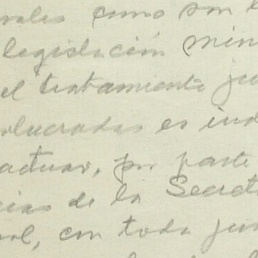 rales como son e
legislación min
el tratamiento ju
olucradas es ind
actuar, por parte
cias de la Secret
al, con toda jus